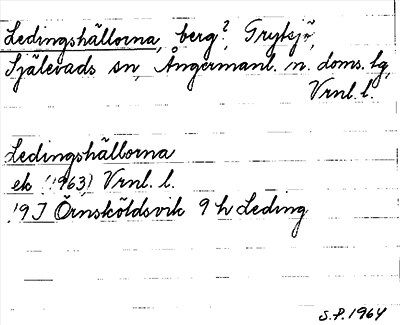 Ledingshällorna, berg?, Grytsjö,
Själevads sn, Ångermanl. n. doms. lg,
Vrnl. l.
Ledingshällorna
ek (1963) Vrnl. l.
19 I Örnsköldsvik 9 h Leding
S.P. 1964